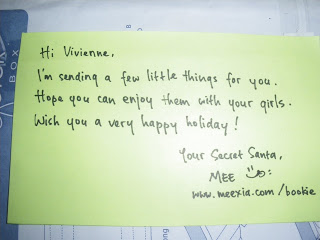 Hi Vivienne,
I'm sending a few little things for you.
Hope you can enjoy them with your girls.
Wish you a very happy holiday!
Your Secret Santa,
MEE
www.meexia.com/bookie
BOX